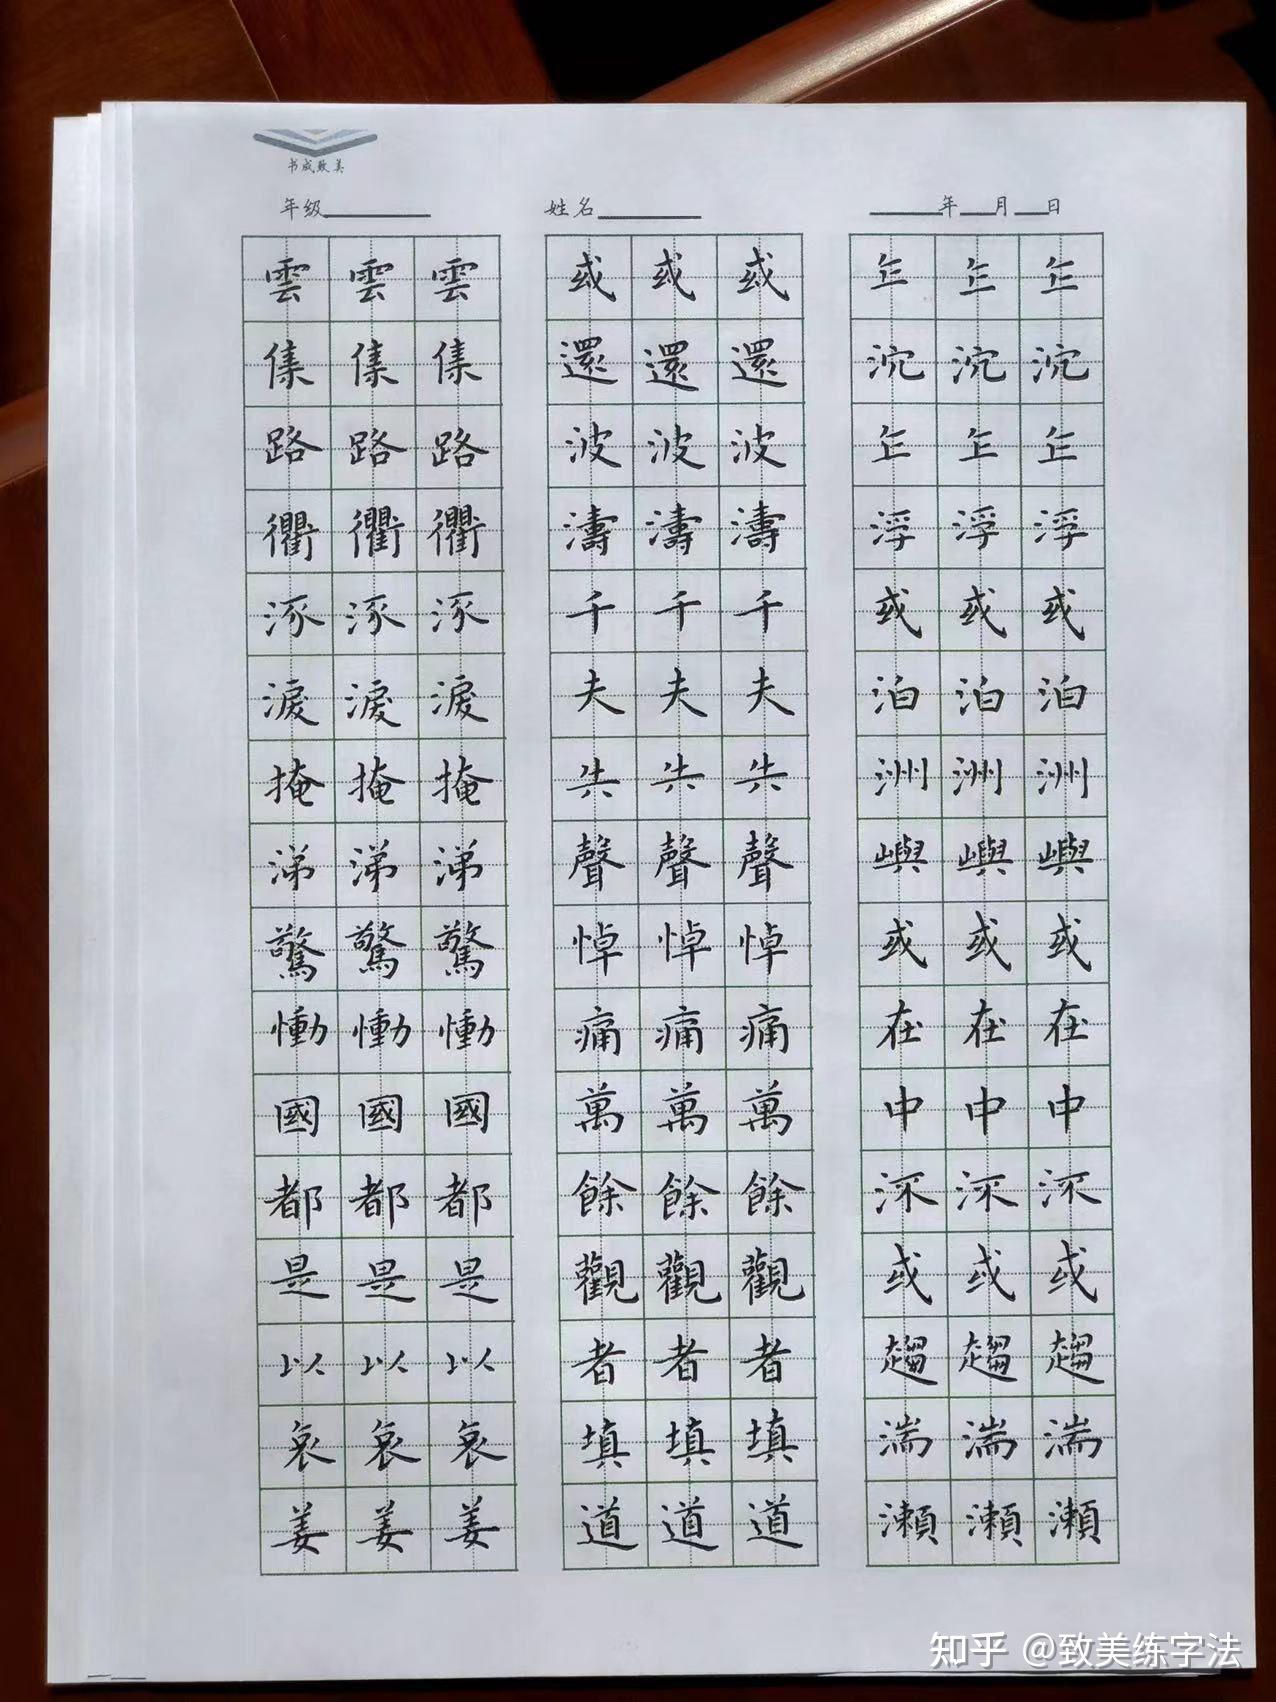 书成致美
年级 姓名 年 月 日
雲 雲 雲
集 集 集
路 路 路
衢 衢 衢
涿 涿 涿
淚 淚 淚
掩 掩 掩
涕 涕 涕
驚 驚 驚
慟 慟 慟
國 國 國
都 都 都
是 是 是
以 以 以
哀 哀 哀
姜 姜 姜
或 或 或
還 還 還
波 波 波
濤 濤 濤
千 千 千
夫 夫 夫
聲 聲 聲
悼 悼 悼
痛 痛 痛
萬 萬 萬
餘 餘 餘
觀 觀 觀
者 者 者
填 填 填
道 道 道
乍 乍 乍
沉 沉 沉
乍 乍 乍
浮 浮 浮
或 或 或
泊 泊 泊
洲 洲 洲
嶼 嶼 嶼
或 或 或
在 在 在
中 中 中
或 或 或
趨 趨 趨
湍 湍 湍
瀬 瀬 瀬
知乎 @致美练字法